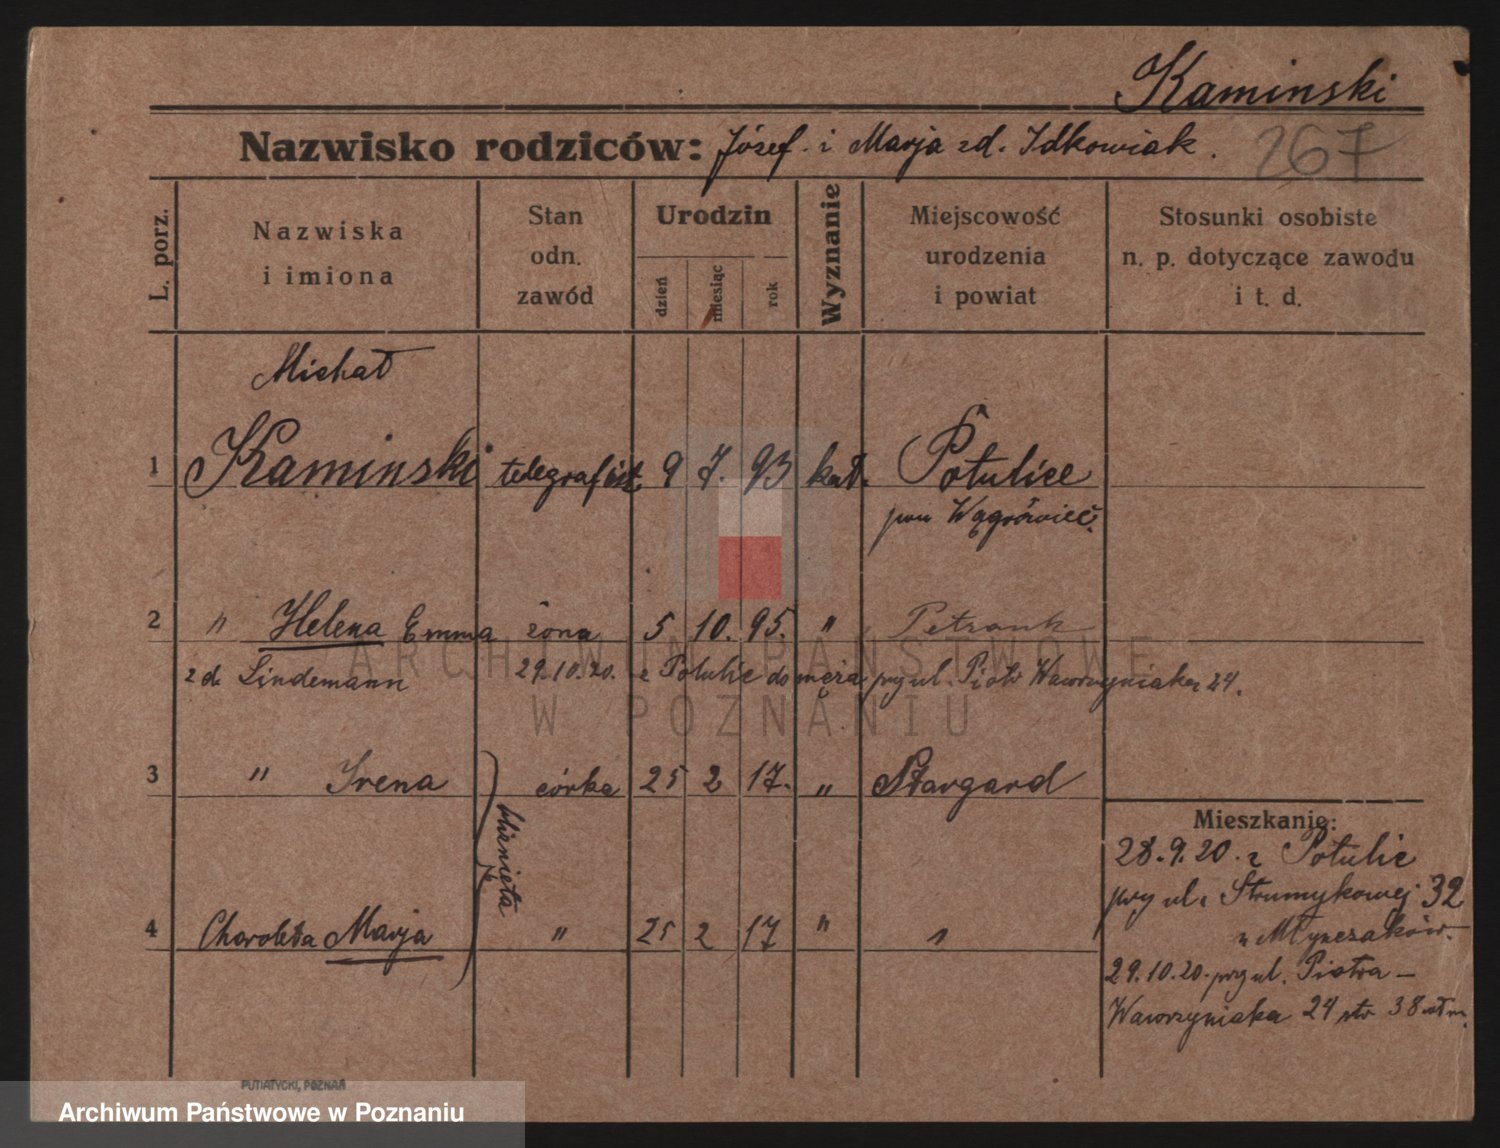 Kaminski
Nazwisko rodziców: Józef i Marja zd. Idkowiak.
267
L. porz.
Nazwiska
i imiona
Stan
odn.
zawód
Urodzin
dzień
miesiąc
rok
Wyznanie
Miejscowość
urodzenia
i powiat
Stosunki osobiste
n. p. dotyczące zawodu
i t. d.
Michał
1 Kaminski telegrafist. 9 7. 93 kat. Potulice
pow Wągrówiec.
2 " Helena Emma żona 5 10. 95. "
zd. Lindemann 29.10.20. z Potulic do męża przy ul. Piotr Wawrzyniaka 24.
3 " Irena córka 25 2 17. " Stargard
bliźnięta
4 Marja " 25 2 17 " "
Mieszkanie:
28.9.20. z Potulic
przy ul. Strumykowej 32
u Młynczaków.
29.10.20. przy ul. Piotra-
Wawrzyniaka 24 str 38
PUTIATYCKI, POZNAŃ
ARCHIWUM PAŃSTWOWE
W POZNANIU
Archiwum Państwowe w Poznaniu